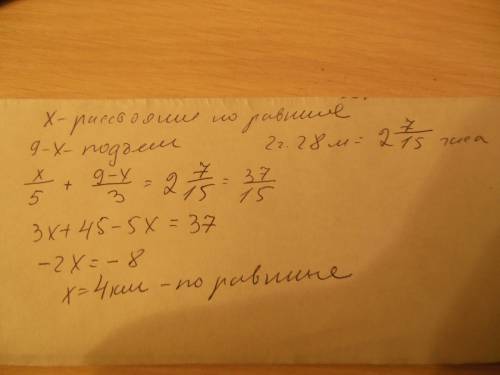 x - расстояние по равнине
9-x - подъем 2ч. 28 м = 2 7/15 часа
x/5 + 9-x/3 = 2 7/15 = 37/15
3x + 45 - 5x = 37
-2x = -8
x = 4км - по равнине